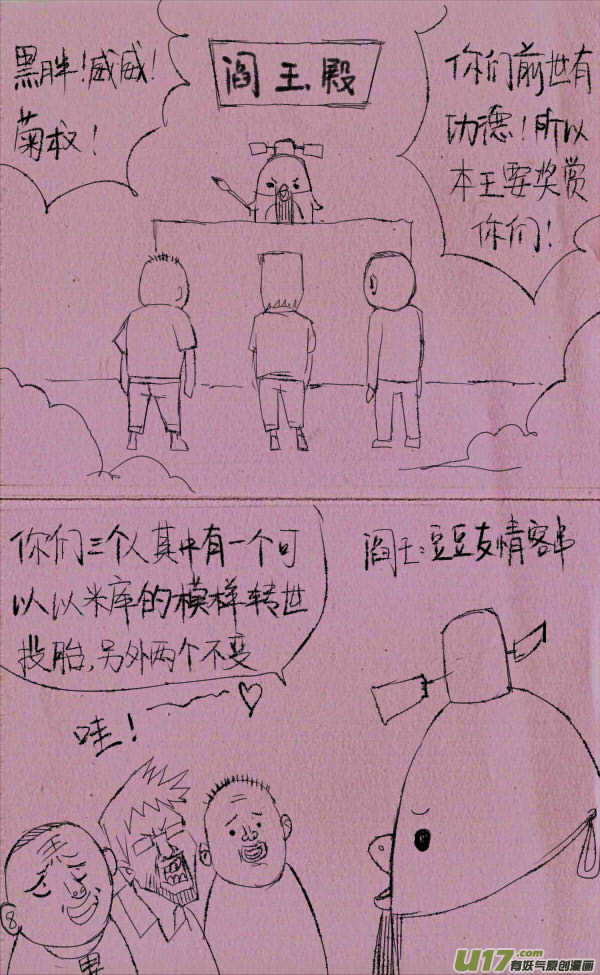 黑胖!威威!
菊校!
阎王殿
你们前世有
功德!所以
本王要奖赏
你们!
你们三个人其中有一个可
以以米库的模样转世
投胎,另外两个不变
哇!
阎王:豆豆友情客串
黑
U17.com
有妖气原创漫画